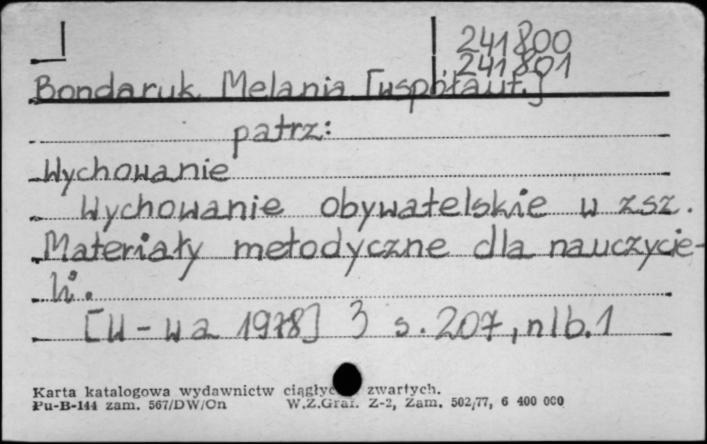 241800
241801
Bondaruk Melania [współaut.]
patrz:
Wychowanie
Wychowanie obywatelskie w zsz.
Materiały metodyczne dla nauczycie-
li.
[W-wa 1978] 3 s. 207, nlb. 1
Karta katalogowa wydawnictw zwartych.
Pu-B-144 zam. 567/DW/On W.Z.Graf. Z-2, Zam. 502/77, 6 400 000